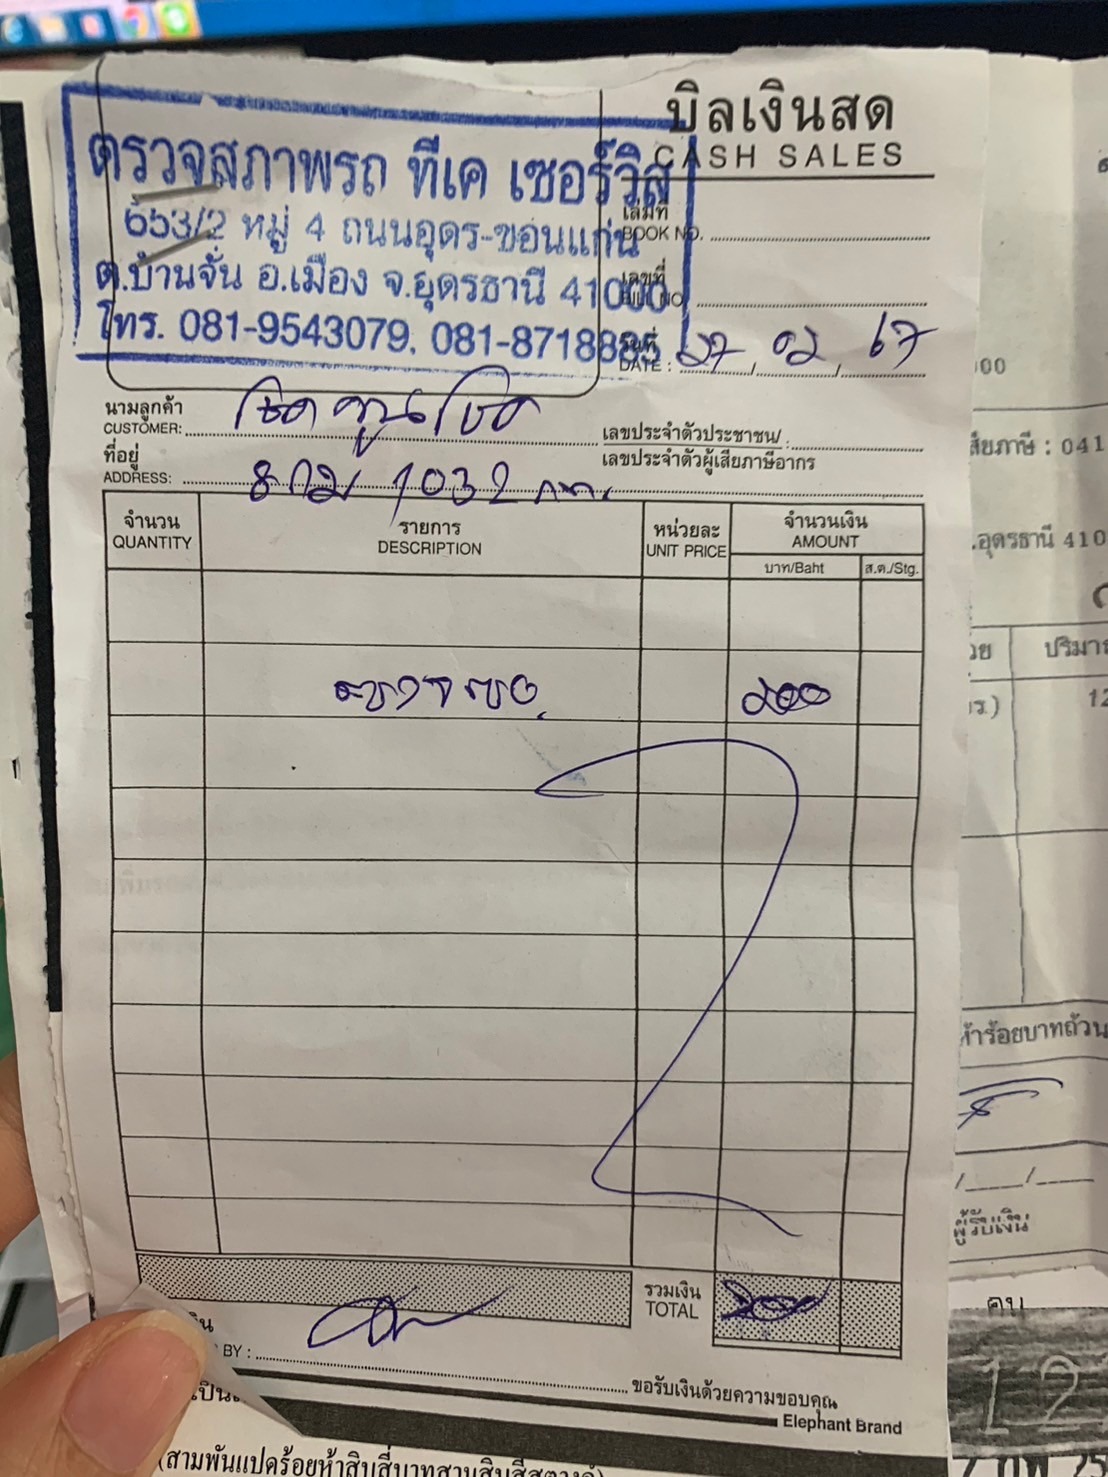 บิลเงินสด
CASH SALES
ตรวจสภาพรถ ทีเค เซอร์วิส
653/2 หมู่ 4 ถนนอุดร-ขอนแก่น
ต.บ้านจั่น อ.เมือง จ.อุดรธานี 41000
โทร. 081-9543079, 081-8718885
เล่มที่
BOOK NO.
เลขที่
BILL NO.
วันที่
DATE : 27, 02, 67
นามลูกค้า
CUSTOMER:
เลขประจำตัวประชาชน/
เลขประจำตัวผู้เสียภาษีอากร
ที่อยู่
ADDRESS: 8กม 1032 กท.
จำนวน
QUANTITY
รายการ
DESCRIPTION
หน่วยละ
UNIT PRICE
จำนวนเงิน
AMOUNT
บาท/Baht
ส.ต./Stg.
ตรวจรถ 200
รวมเงิน
TOTAL 200
BY :
ขอรับเงินด้วยความขอบคุณ
Elephant Brand
(สามพันแปดร้อยห้าสิบสี่บาทสามสิบสี่สตางค์)
00
เสียภาษี : 041
.อุดรธานี 410
ปริมา
12
ห้าร้อยบาทถ้วน
ผู้รับเงิน